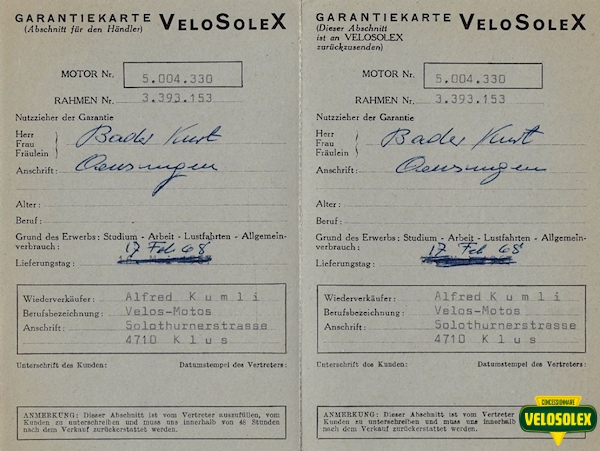 GARANTIEKARTE VELOSOLEX
(Abschnitt für den Händler)
MOTOR Nr. 5.004.330
RAHMEN Nr. 3.393.153
Nutzzieher der Garantie
Herr
Frau
Fräulein
Bader Kurt
Anschrift: Oensingen
Alter:
Beruf:
Grund des Erwerbs: Studium - Arbeit - Lustfahrten - Allgemein-
verbrauch: 17 Feb 68
Lieferungstag:
Wiederverkäufer: Alfred Kumli
Berufsbezeichnung: Velos-Motos
Anschrift: Solothurnerstrasse
4710 Klus
Unterschrift des Kunden: Datumstempel des Vertreters:
ANMERKUNG: Dieser Abschnitt ist vom Vertreter auszufüllen, vom
Kunden zu unterschreiben und muss uns innerhalb von 48 Stunden
nach dem Verkauf zurückerstattet werden.
GARANTIEKARTE VELOSOLEX
(Dieser Abschnitt
ist an VELOSOLEX
zurückzusenden)
MOTOR Nr. 5.004.330
RAHMEN Nr. 3.393.153
Nutzzieher der Garantie
Herr
Frau
Fräulein
Bader Kurt
Anschrift: Oensingen
Alter:
Beruf:
Grund des Erwerbs: Studium - Arbeit - Lustfahrten - Allgemein-
verbrauch: 17 Feb 68
Lieferungstag:
Wiederverkäufer: Alfred Kumli
Berufsbezeichnung: Velos-Motos
Anschrift: Solothurnerstrasse
4710 Klus
Unterschrift des Kunden: Datumstempel des Vertreters:
ANMERKUNG: Dieser Abschnitt ist vom Vertreter
Kunden zu unterschreiben und muss uns innerhalb
nach dem Verkauf zurückerstattet werden.
CONCESSIONNAIRE
VELOSOLEX